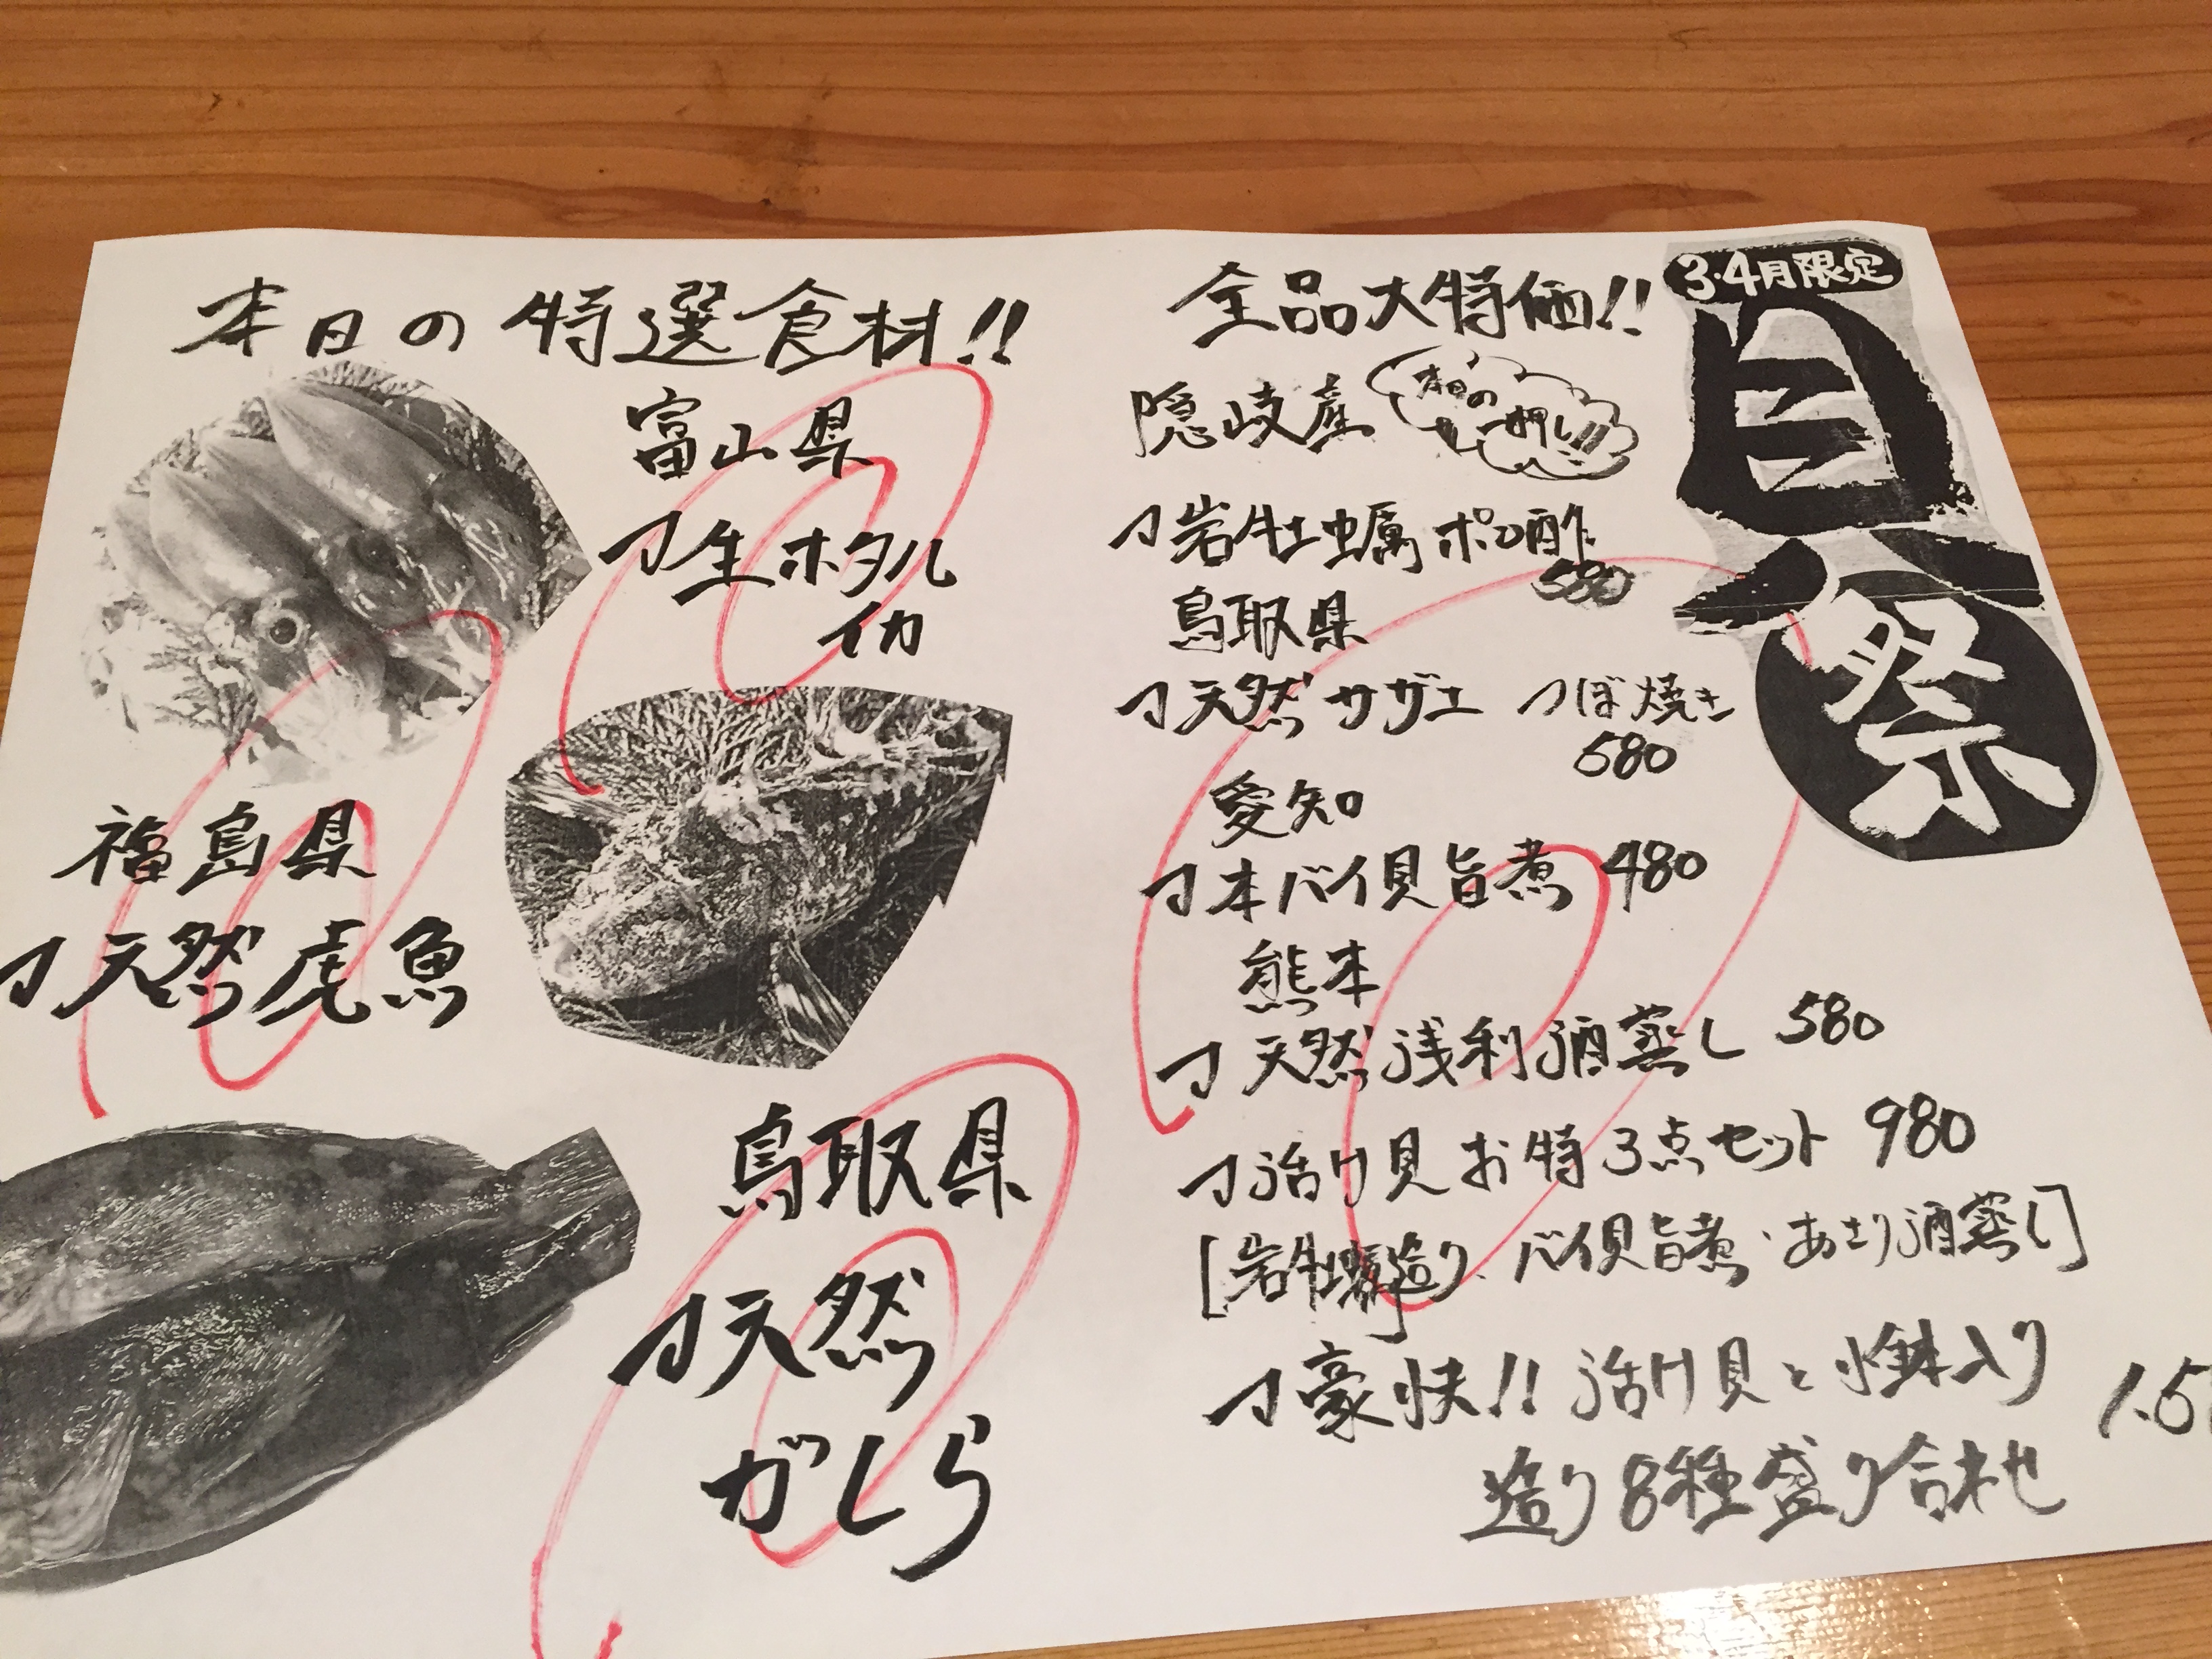 本日の特選食材!!
富山県
生ホタル
イカ
福島県
天然虎魚
鳥取県
天然
がしら
3・4月限定
貝祭
全品大特価!!
隠岐産
本日の
一押し!!
岩牡蠣ポン酢
580
鳥取県
天然サザエ つぼ焼き
580
愛知
本バイ貝旨煮 480
熊本
天然浅利酒蒸し 580
活け貝お特3点セット 980
[岩牡蠣造り、バイ貝旨煮・あさり酒蒸し]
豪快!!活け貝と小鉢入り
造り8種盛り合わせ